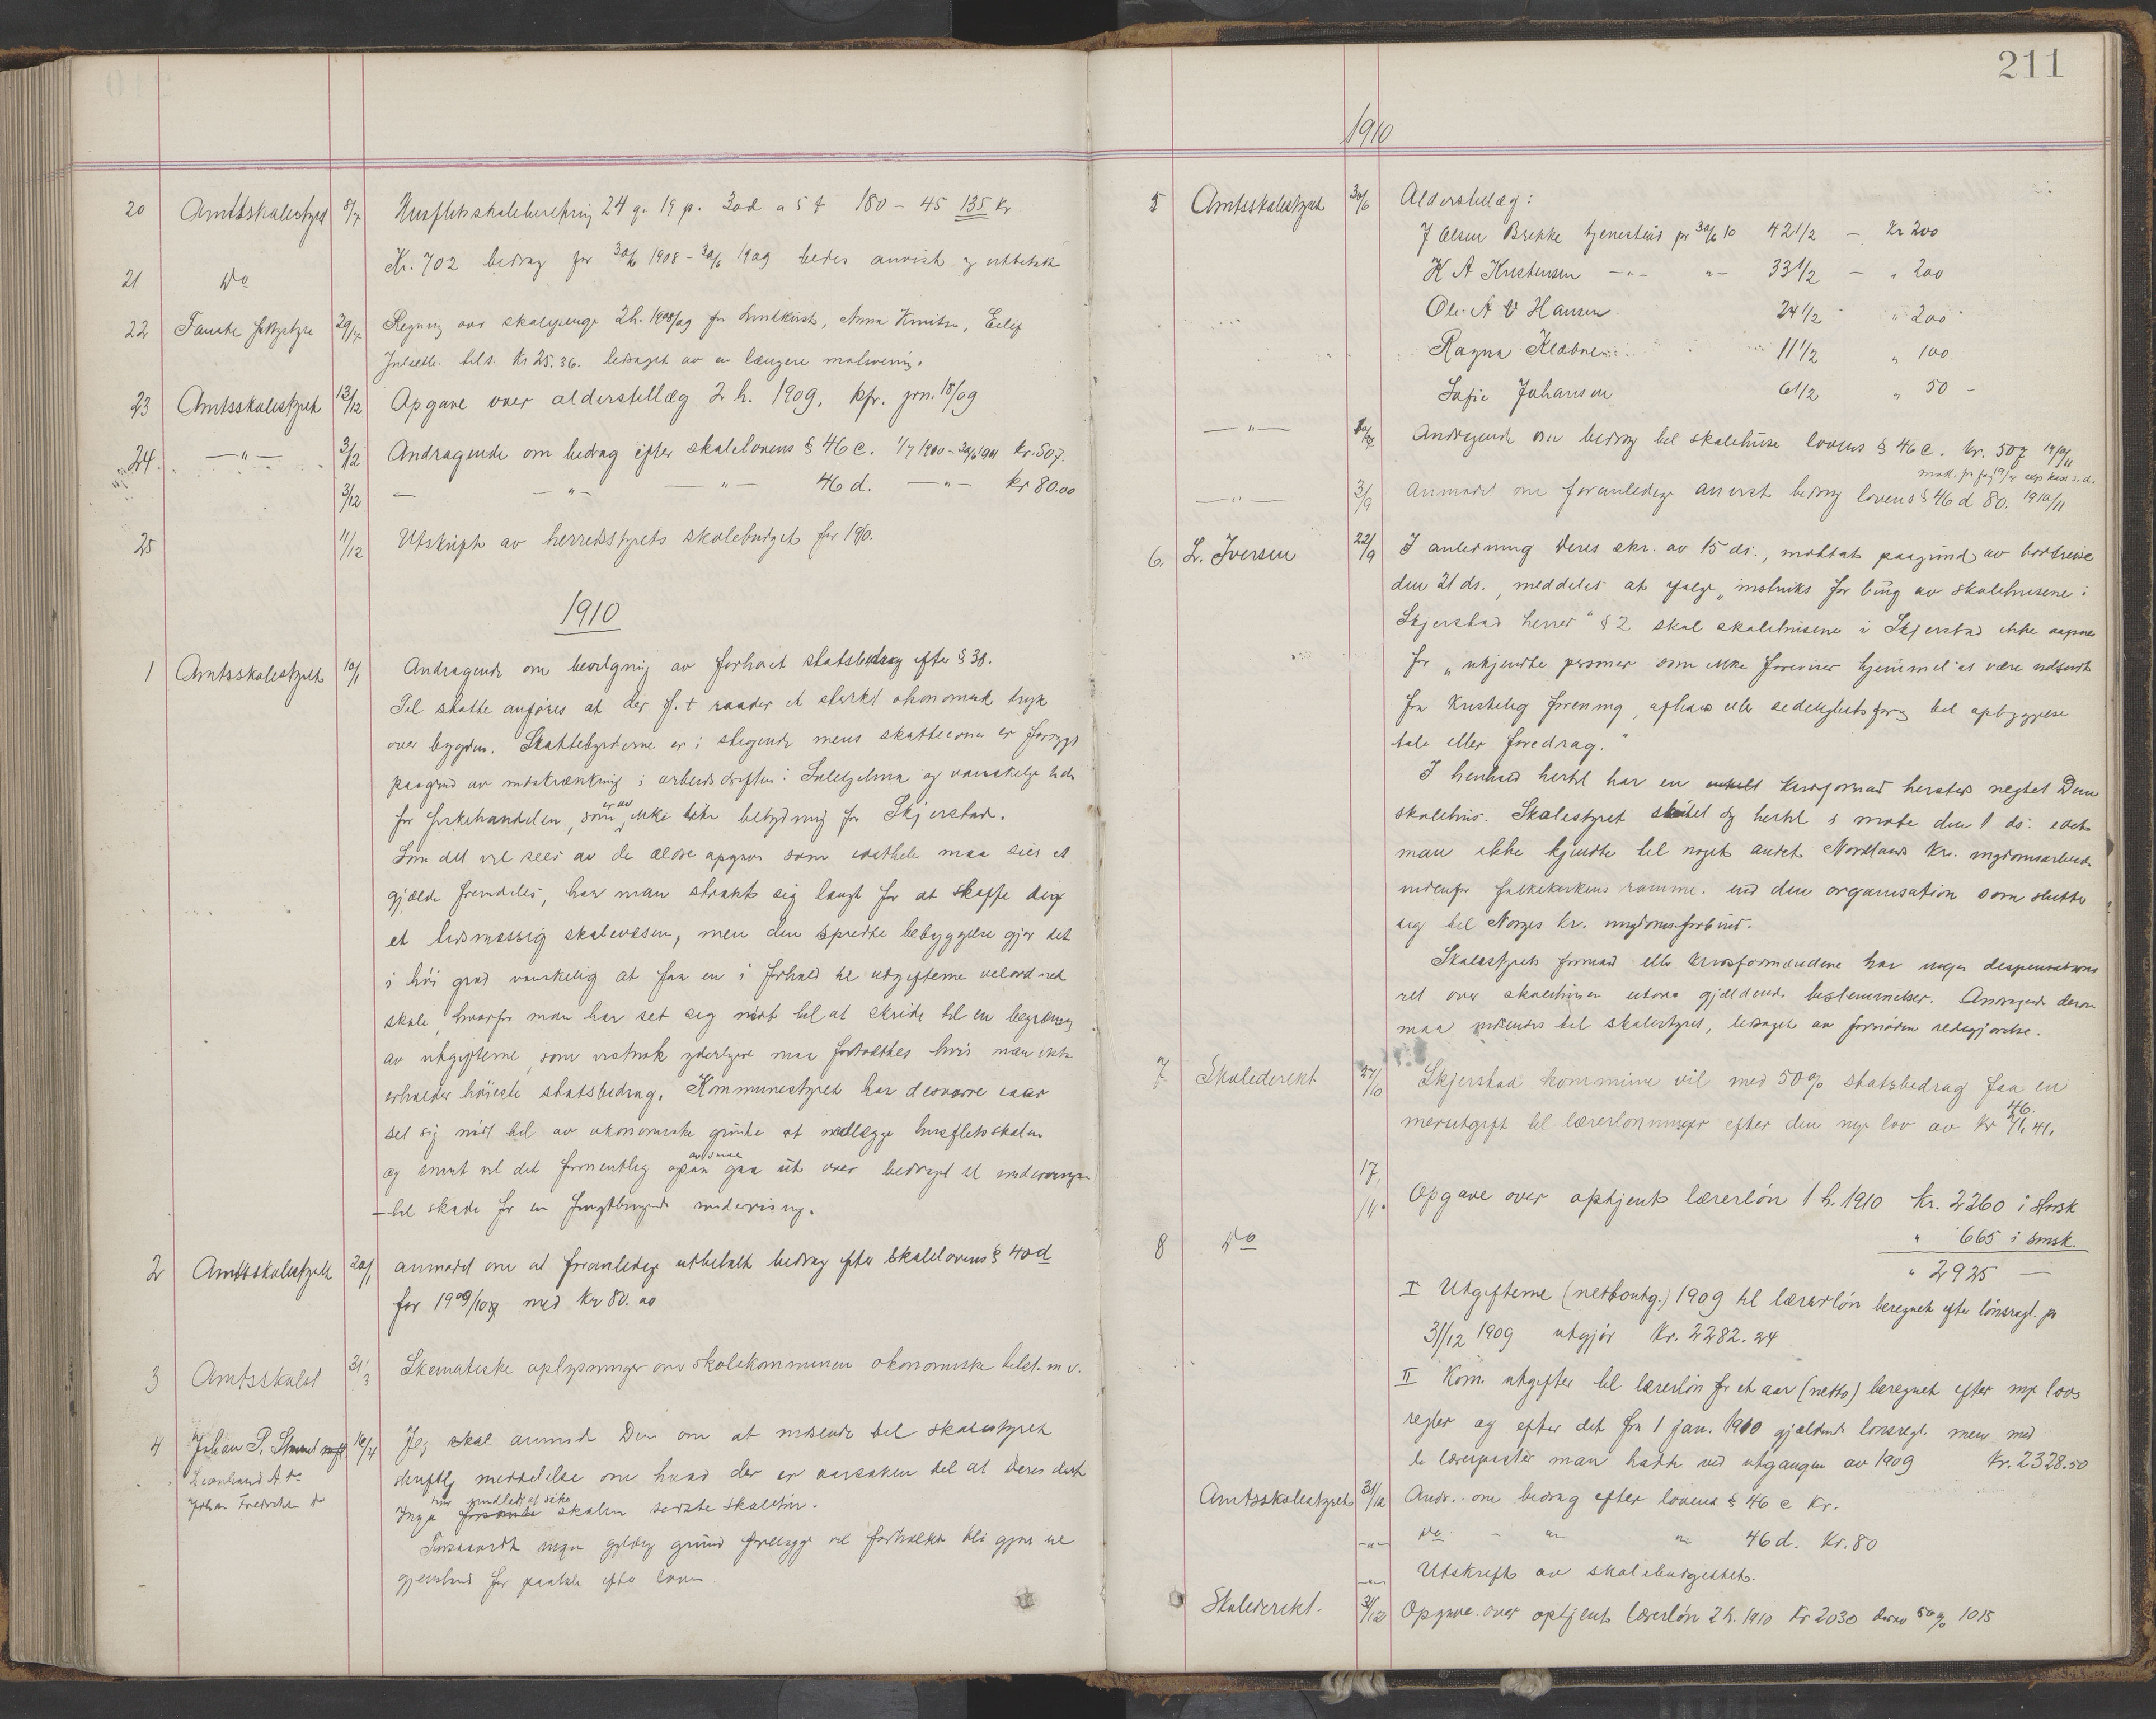 20 Amtsskolestyret 8/7 Husflidsskoleberetning 24 g. 19 p. 30d a 5 t 180 – 45 135 kr
21 Do Kr. 702 bidrag for 30/6 1908 – 30/6 1909 bedes anvist og utbetalt
22 29/7 Regning over skolepenge 2 h. 1908/09 for Lindkvist, Anna Knutsen, Eilif
tils. kr 25.36. ledsaget av en længere
23 Amtsskolestyret 13/12 Opgave over alderstillæg 2 h. 1909. kfr. jrn. 18/09
24. – " – 3/12 Andragende om bidrag efter skolelovens § 46 c. 1/7 1900 – 30/6 1901 kr. 507.
3/12 – – " – – " – 46 d. – " – kr 80.00
25 11/12 Utskrift av herredsstyrets skolebudget for 1910.
1910
1 Amtsskolestyret 10/1 Andragende om bevilgning av forhøiet statsbidrag efter § 38.
Til støtte anføres at der f. t raader et sterkt økonomisk tryk
over bygden. Skattebyrderne er i stigende mens skatteevnen er forsygt
paagrund av indskrænkning i arbeidsdriften i Sulitjelma og vanskelige tider
for fiskehandelen, som er av ikke liten betydning for Skjerstad.
Som det vil sees av de ældre opgaver som enkelte maa sies at
gjælde fremdeles, har man strakt sig langt for at skaffe
et tidsmæssig skolevæsen, men den spredte bebyggelse gjør det
i høi grad vanskelig at faa en i forhold til utgifterne velordnet
skole, hvorfor man har set sig nødt til at skride til en begrænsning
av utgifterne, som vistnok yderligere maa fortsættes hvis man ikke
erholder høieste statsbidrag. Kommunestyret har desværre iaar
set sig nødt til av økonomiske grunde at nedlægge husflidsskolen
og snart vil det formentlig av samme gaa ut over bidraget til undervisningen
– til skade for en frugtbringende undervisning.
2 Amtsskolestyret 20/1 anmodet om at foranledige utbetalt bidrag efter skolelovens § 40 d
for 1909/1089 med kr 80.00
3 Amtsskolst 31/3 Skematiske oplysninger om skolekommunens økonomiske tilst. m v.
4 Johan P. 16/4 Jeg skal anmode Dem om at indsende til skolestyret
Leonhard A. do skriftlig meddelelse om hvad der er aarsaken til at Deres datter
Johan Fredriksen do Inga har undlatt at søke forsømte skolen sidste skoletur.
Forsaavidt ingen gyldig grund foreligger vil forholdet bli gjort til
gjenstand for paatale efter loven.
211
1910
5 Amtsskolestyret 30/6 Alderstillæg:
J Olsen Brekke tjenestetid pr 30/6 10 42 1/2 – kr 200
K A Kristensen – " – " – 33 1/2 – " 200
Ole A V Hansen 24 1/2 " 200
Ragna 11 1/2 " 100
Sofie Johansen 6 1/2 " 50 –
– " – Andragende om bidrag til skolehuse lovens § 46 c. kr. 507 1910/11
– " – 3/9 Anmodet om foranledige anvist bidrag lovens § 46 d 80. 1910/11
6. L. Iversen 22/9 I anledning Deres skr. av 15 ds., mottat paagrund av bortreise
den 21 ds., meddeles at ifølge „instruks for brug av skolehusene i
Skjerstad herred" § 2 skal skolehusene i Skjerstad ikke aapnes
for „ukjendte personer som ikke foreviser hjemmel at være utsendt
fra kristelig forening, afholds eller sedelighetsforg til opbyggelse
tale eller foredrag."
I henhold hertil har en enkelt kredsformand herstads negtet Dem
skolehus. Skolestyret sluttet sig hertil i møte den 1 ds. idet
man ikke kjendte til noget andet Nordlands kr. ungdomsarbeide
indenfor folkekirkens ramme end den organisation som slutter
sig til Norges kr. ungdomsforbund.
Skolestyrets formand eller kredsformændene har ingen dispensations
ret over skolehusene utover gjældende bestemmelser. Andragende derom
maa indsendes til skolestyret, ledsaget av fornøden redegjørelse.
7 Skoledirekt 27/10 Skjerstad kommune vil med 50 % statsbidrag faa en
merutgift til lærerlønninger efter den nye lov av kr 46. 71.41.
8 Do 17/11. Opgave over optjent lærerløn 1 h. 1910 kr. 2260 i storsk
" 665 i smsk.
" 2925 –
I Utgifterne (nettoutg.) 1909 til lærerløn beregnet efter lønsregl. pr
31/12 1909 utgjør kr. 2282.24
II Kom. utgifter til lærerløn for et aar (netto) beregnet efter nye lovs
regler og efter det fra 1 jan. 1910 gjældende lønsregl. men med
de lærerposter man hadde ved utgangen av 1909 kr. 2328.50
Amtsskolestyret 31/12 Andr. om bidrag efter lovens § 46 c kr.
– " – do – " – " 46 d. kr. 80
– " – Utskrift av skolebudgettet.
Skoledirekt. 31/12 Opgave over optjent lærerløn 2 h. 1910 kr 2030 derav 50 % 1015